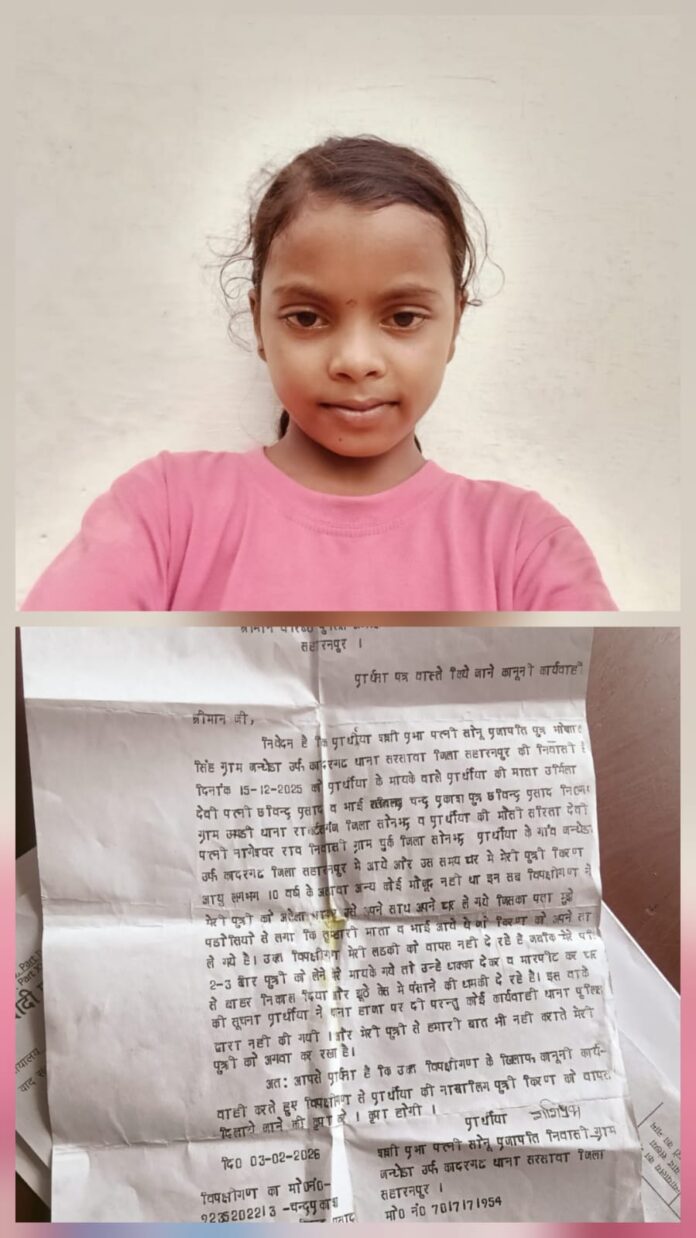 सहारनपुर ।
प्रार्थना पत्र वास्ते किये जाने कानूनी कार्यवाही
श्रीमान जी,
निवेदन है कि प्रार्थीया शशी प्रभा पत्नी सोनू प्रजापति पुत्र
सिंह ग्राम जन्धेडा उर्फ कादरगढ थाना सरसावा जिला सहारनपुर की निवासी है
दिनांक 15-12-2025 को प्रार्थीया के मायके वाले प्रार्थीया की माता उर्मिला
देवी पत्नी छविन्द्र प्रसाद व भाई चन्द्र प्रकाश पुत्र छविन्द्र प्रसाद
ग्राम थाना जिला सोनभद्र व प्रार्थीया की मौसी सरिता देवी
पत्नी नागेश्वर राव निवासी ग्राम चुर्क जिला सोनभद्र प्रार्थीया के गांव जन्धेडा
उर्फ कादरगढ जिला सहारनपुर मे आये और उस समय घर मे मेरी पुत्री किरण
आयु लगभग 10 वर्ष के अलावा अन्य कोई मौजूद नही था इन सब विपक्षीगण ने
मेरी पुत्री को अकेला उसे अपने साथ अपने घर ले गये जिसका पता मुझे
पडोसियो से लगा कि तुम्हारी माता व भाई आये थे जो किरण को अपने सा
ले गये है। उक्त विपक्षीगण मेरी लडकी को वापस नही दे रहे है जबकि मेरे पति
2-3 बार पुत्री को लेने मेरे मायके गये तो उन्हे धक्का देकर व मारपीट कर घर
से बाहर निकाल दिया और झूठे केस मे फंसाने की धमकी दे रहे है। इस वाके
की सूचना प्रार्थीया ने थाना हाजा पर दी परन्तु कोई कार्यवाही थाना पुलिस
द्वारा नही की गयी । और मेरी पुत्री से हमारी बात भी नही कराते मेरी
पुत्री को अगवा कर रखा है।
अत: आपसे प्रार्थना है कि उक्त विपक्षीगण के खिलाफ कानूनी कार्य-
वाही करते हुए विपक्षीगण से प्रार्थीया की नाबालिग पुत्री किरण को वापस
दिलाये जाने की कृपा करे । कृपा होगी ।
प्रार्थीया शशिप्रभा
शशी प्रभा पत्नी सोनू प्रजापति निवासी-ग्राम
जन्धेडा उर्फ कादरगढ थाना सरसावा जिला
सहारनपुर ।
मो0 नं0 7017171954
दि0 03-02-2026
विपक्षीगण का मो0नं0-
9235202213 -चन्द्रप्रकाश